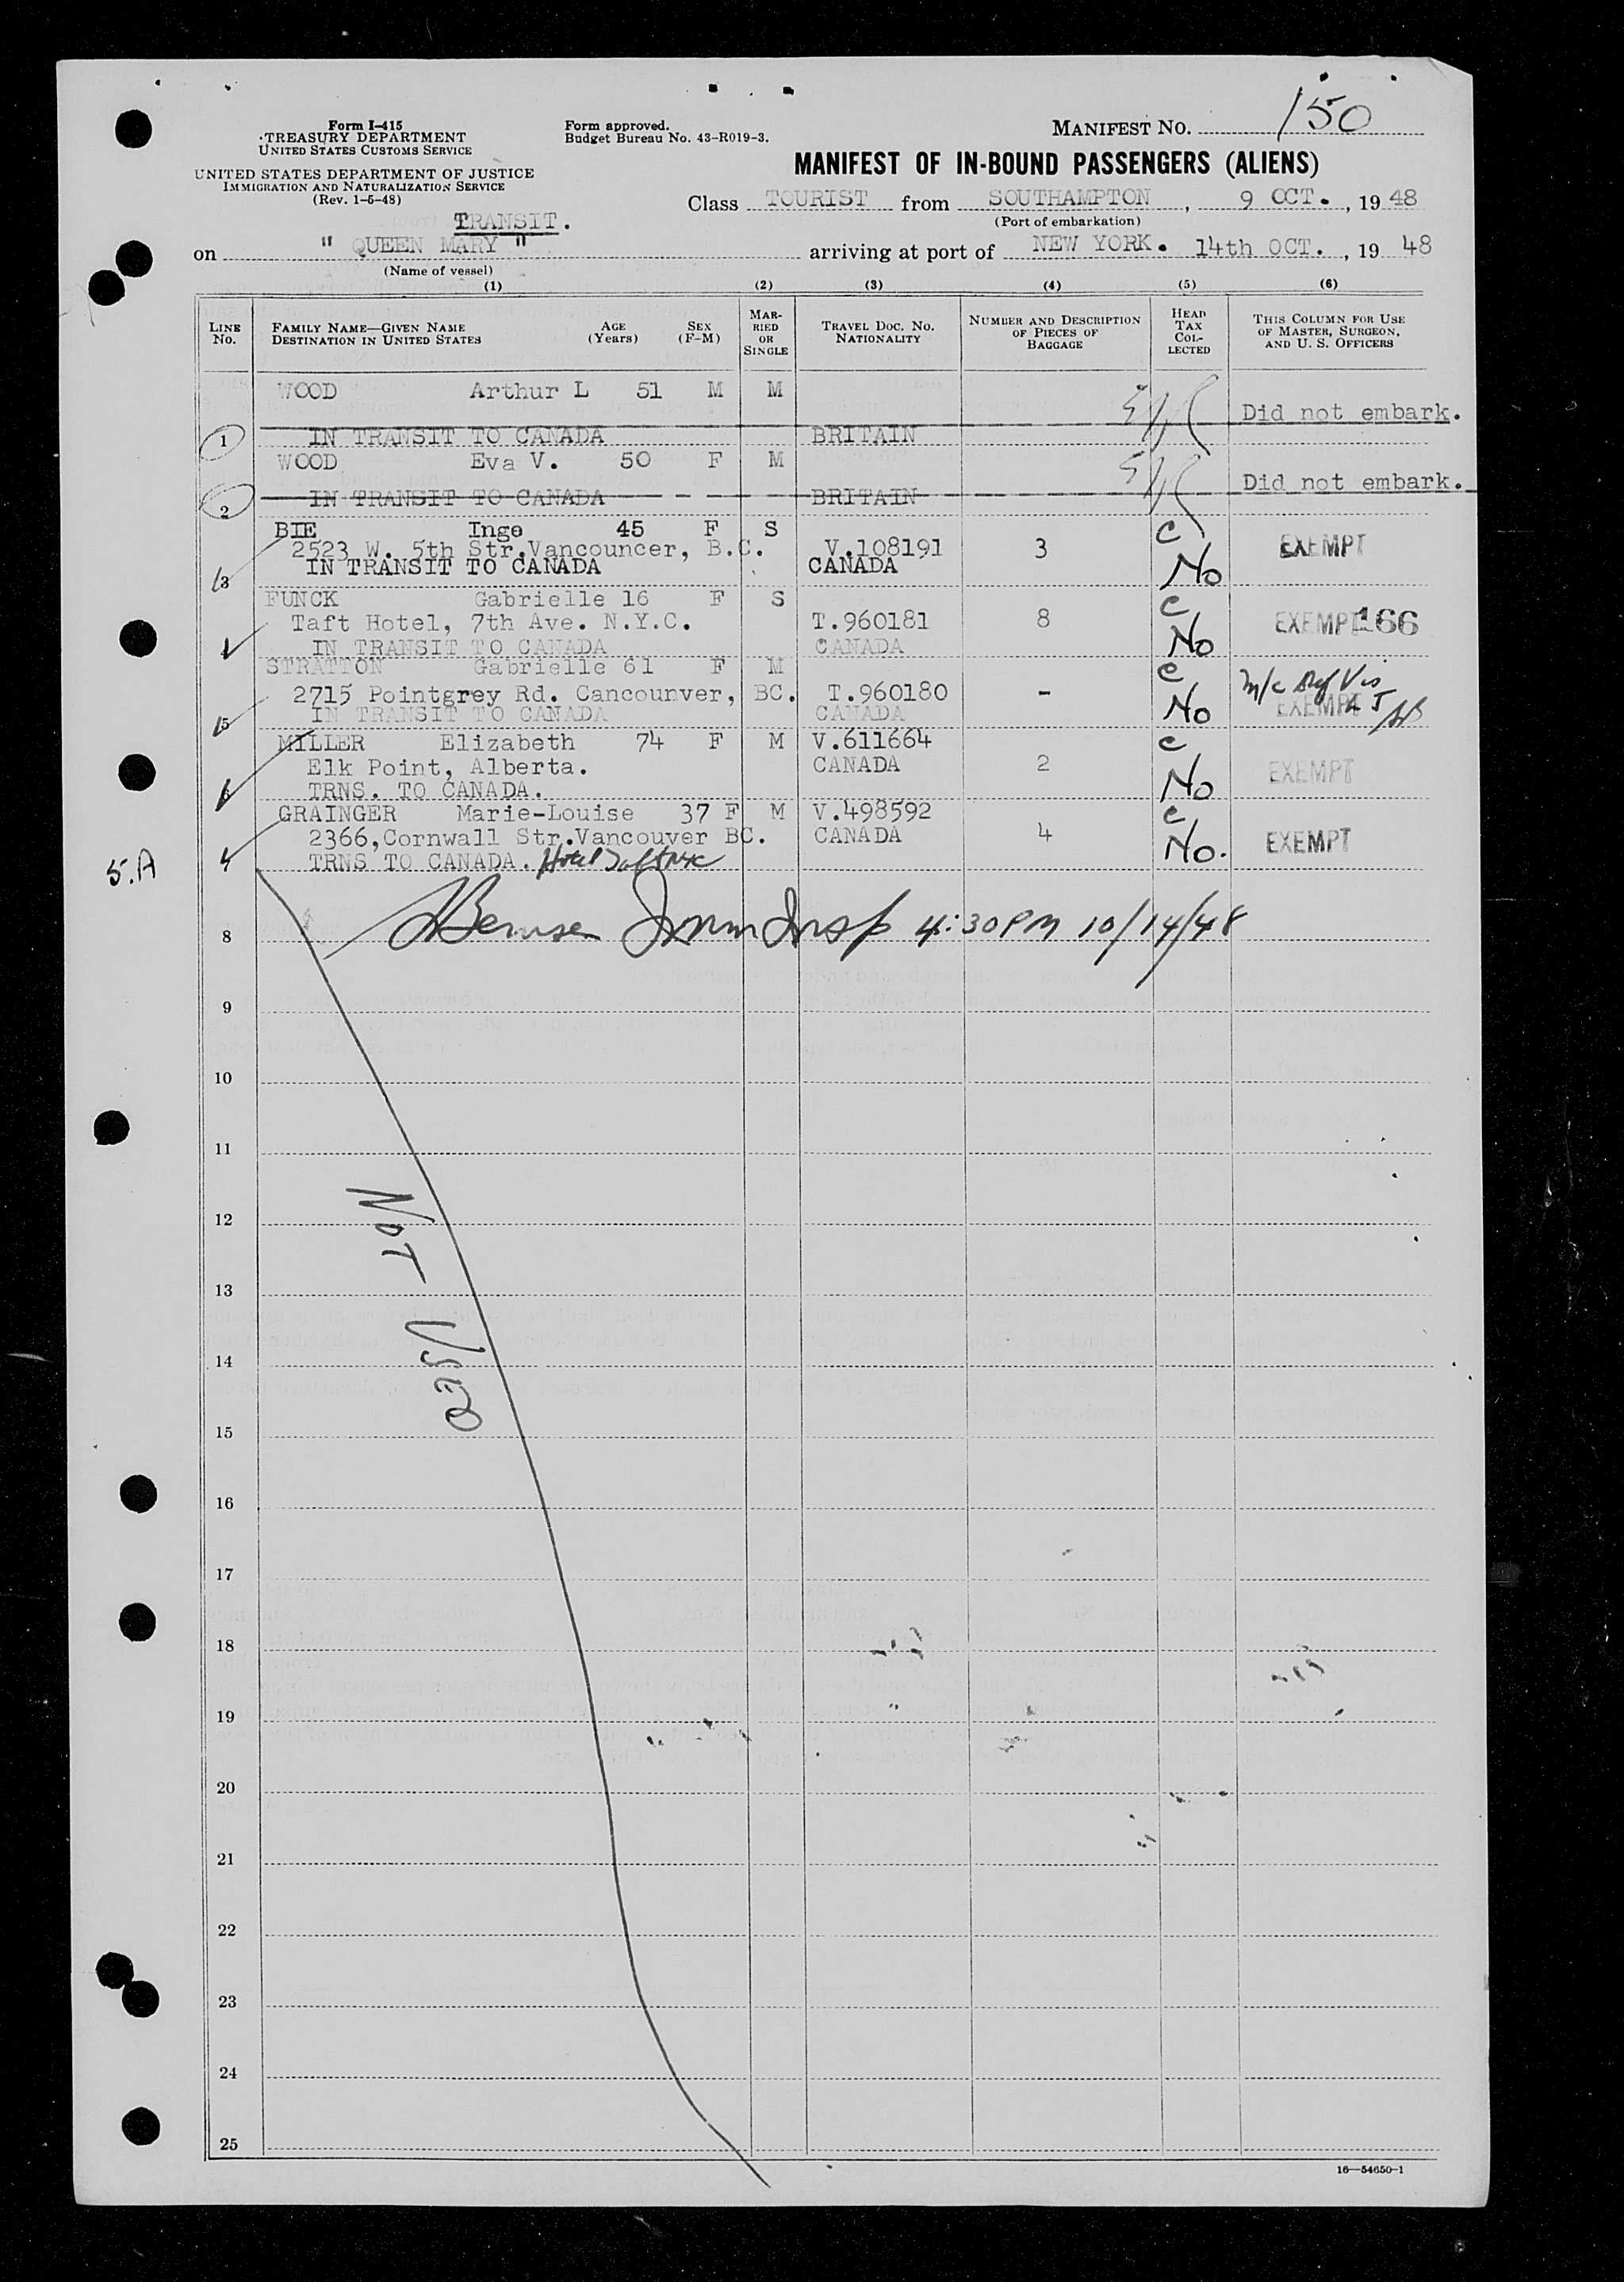 Form I-415
TREASURY DEPARTMENT
UNITED STATES CUSTOMS SERVICE
UNITED STATES DEPARTMENT OF JUSTICE
IMMIGRATION AND NATURALIZATION SERVICE
(Rev. 1-5-48)
Form approved.
Budget Bureau No. 43-R019-3.
MANIFEST NO. 150
MANIFEST OF IN-BOUND PASSENGERS (ALIENS)
Class TOURIST from SOUTHAMPTON, 9 OCT., 19 48
(Port of embarkation)
TRANSIT.
on " QUEEN MARY " arriving at port of NEW YORK. 14th OCT., 19 48
(Name of vessel)
(1) (2) (3) (4) (5) (6)
LINE No. FAMILY NAME—GIVEN NAME DESTINATION IN UNITED STATES AGE (Years) SEX (F-M) MARRIED OR SINGLE TRAVEL DOC. NO. NATIONALITY NUMBER AND DESCRIPTION OF PIECES OF BAGGAGE HEAD TAX COLLECTED THIS COLUMN FOR USE OF MASTER, SURGEON, AND U. S. OFFICERS
WOOD Arthur L 51 M M
Did not embark.
1 IN TRANSIT TO CANADA BRITAIN
WOOD Eva V. 50 F M
Did not embark.
2 IN TRANSIT TO CANADA BRITAIN
BIE Inge 45 F S C
2523 W. 5th Str.Vancouncer, B.C. V.108191 3 EXEMPT
3 IN TRANSIT TO CANADA CANADA No
FUNCK Gabrielle 16 F S C
Taft Hotel, 7th Ave. N.Y.C. T.960181 8 EXEMPT 166
IN TRANSIT TO CANADA CANADA No
STRATTON Gabrielle 61 F M C
2715 Pointgrey Rd. Cancounver, BC. T.960180 - EXEMPT
5 IN TRANSIT TO CANADA CANADA No
MILLER Elizabeth 74 F M V.611664 C
Elk Point, Alberta. CANADA 2 EXEMPT
6 TRNS. TO CANADA. No
GRAINGER Marie-Louise 37 F M V.498592 C
2366,Cornwall Str.Vancouver BC. CANADA 4 EXEMPT
TRNS TO CANADA. Hotel Taft NYC No.
5.A
Imm Insp 4:30 PM 10/14/48
8
9
10
11
12
NOT USED
13
14
15
16
17
18
19
20
21
22
23
24
25
16—54650-1